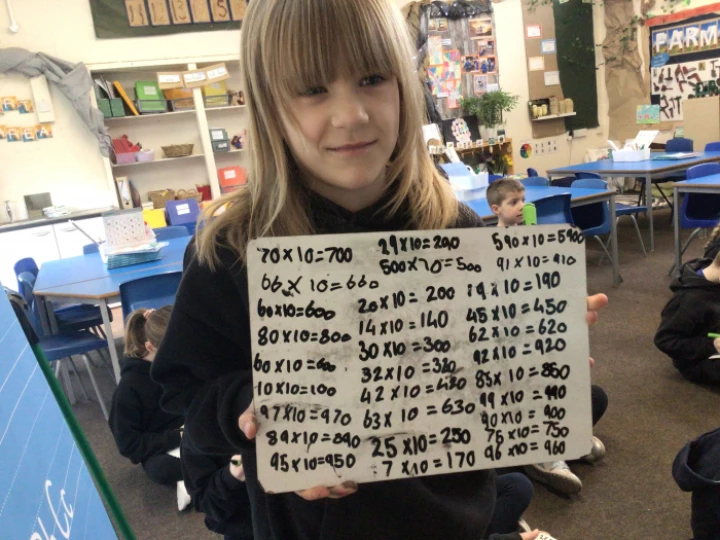 70 x 10 = 700
66 x 10 = 660
60 x 10 = 600
80 x 10 = 800
60 x 10 = 600
10 x 10 = 100
97 x 10 = 970
89 x 10 = 890
95 x 10 = 950
29 x 10 = 290
20 x 10 = 200
14 x 10 = 140
30 x 10 = 300
32 x 10 = 320
42 x 10 = 420
63 x 10 = 630
25 x 10 = 250
7 x 10 = 170
590 x 10 = 5900
91 x 10 = 910
19 x 10 = 190
45 x 10 = 450
62 x 10 = 620
92 x 10 = 920
85 x 10 = 850
99 x 10 = 990
90 x 10 = 900
75 x 10 = 750
96 x 10 = 960
FARM